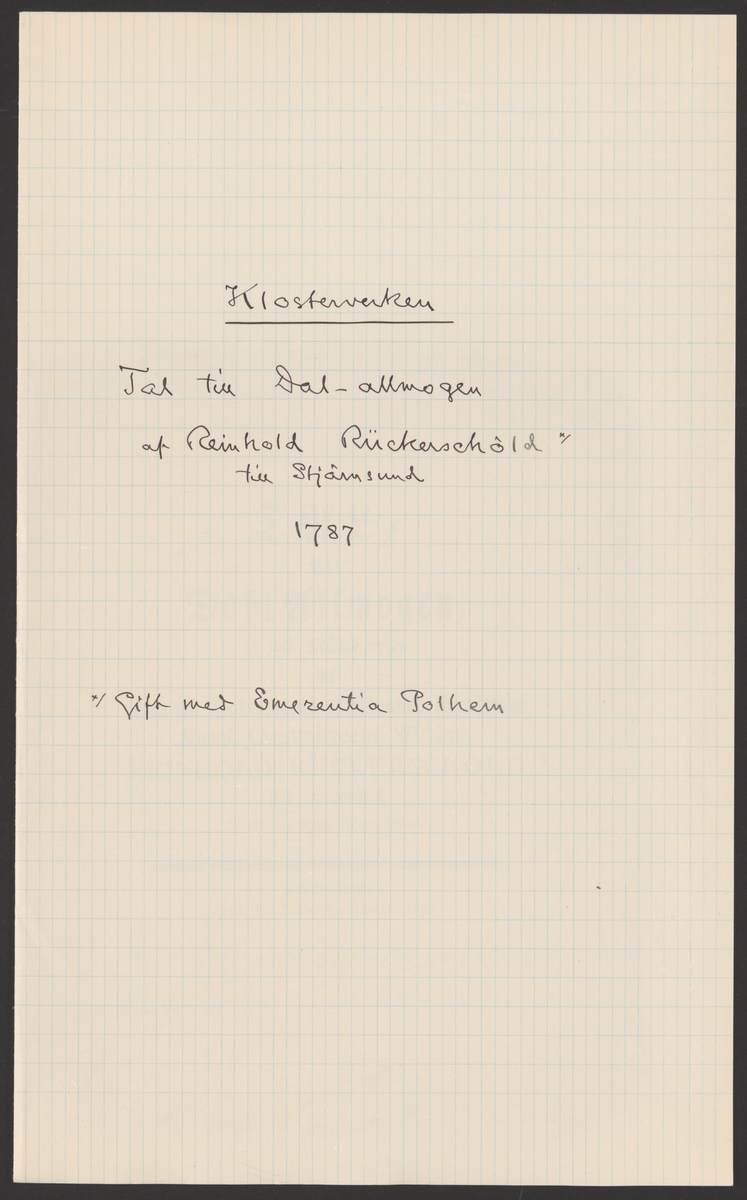 Klosterverken
Tal till Dal-allmogen
af Reinhold Rückerschöld x/
till Stjärnsund
1787
x/ Gift med Emerentia Polhem